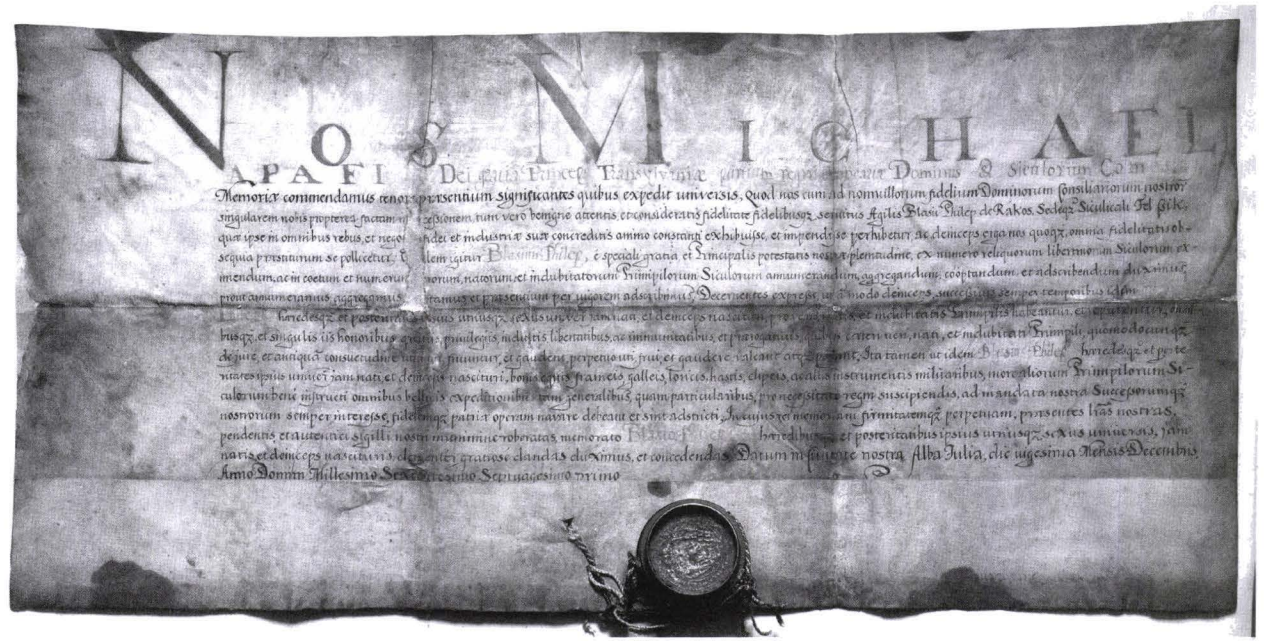 NOS MICHAEL
APAFI Dei gratia Princeps Transylvaniæ partium regni Dominus & Siculorum Com
Memoriæ commendamus tenore præsentium significantes quibus expedit universis, Quod nos cum ad nonnullorum fidelium Dominorum Consiliariorum nostror
singularem nobis propterea factam cessionem, tum vero benigne attentis, et consideratis fidelitate fidelibusqz servitiis Agilis Blasii Philep de Rakos, Sedeqz Siculicali Fel Csik,
quæ ipse in omnibus rebus, et fidei et industriæ suæ concreditis animo constanti exhibuisse, et impendisse perhibetur ac deinceps erga nos quoqz, omnia fidelitatis ob-
sequia præstiturum se pollicetur, igitur Blasium Philep, è speciali gratia, et Principalis potestatis nostræ plenitudine, ex numero reliquorum libertinorum Siculorum ex
imendum, ac in coetum et numerum natorum, et indubitatorum Primipilorum Siculorum annumerandum, aggregandum, cooptandum, et adscribendum duximus,
prout annumeramus aggregamus et præsentium per vigorem adscribimus, Decernentes expresse, ut à modo deinceps, successivis semper temporibus idem
hæredesqz et posteritates utriusqz sexus universi jam nati, et deinceps nascituri, pro et indubitatis Primipilis habeantur, et reputentur,
busqz, et singulis iis honoribus gratiis, privilegiis, indultis, libertatibus, ac immunitatibus, et prærogativis, quibus cæteri veri, nati, et indubitati Primipili, quomodocunqz
de jure, et antiqua consuetudine fruuntur, et gaudent, perpetuo uti, frui, et gaudere valeant atqz possint, Ita tamen ut idem Blasius Philep hæredesqz et poste
ritates ipsius universi jam nati, et deinceps nascituri, bonis equis, frameis, galleis, loricis, hastis, clipeis, ac aliis instrumentis militaribus, more aliorum Primipilorum Si-
culorum bene instructi omnibus bellicis expeditionibus tam generalibus, quam particularibus, pro necessitate regni suscipiendis, ad mandata nostra Successorumqz
nostrorum semper interesse, fidelemqz patriæ operam navare debeant et sint adstricti, In cujus rei memoriam firmitatemqz perpetuam, præsentes lras nostras,
pendentis, et autentici sigilli nostri munimine roboratas, memorato Blasio Philep hæredibusqz et posteritatibus ipsius utriusqz sexus universis, jam
natis, et deinceps nascituris, clementer gratiose dandas duximus, et concedendas Datum in Civitate nostra Alba Julia, die vigesima Mensis Decembris,
Anno Domini Millesimo Sexcentesimo Septuagesimo primo